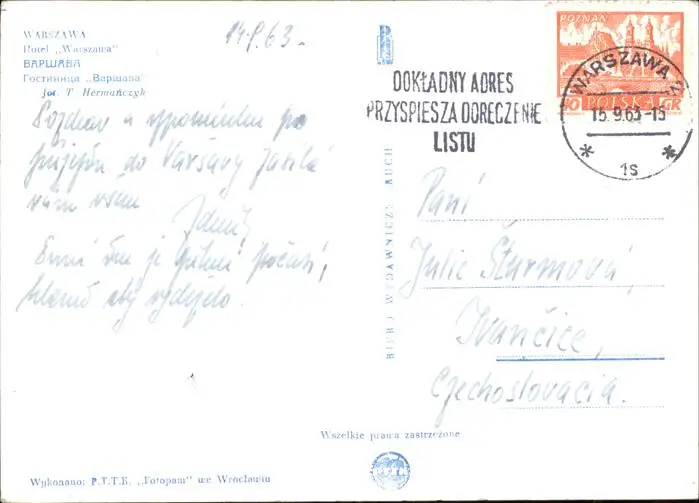 WARSZAWA
Hotel „Warszawa"
ВАРШАВА
Гостиница „Варшава"
fot. T. Hermańczyk
14.9.63.
Pozdrav a vzpomínku po
příjezdu do Varšavy zasílá
vám všem
je pěkné počasí,
vydrželo.
DOKŁADNY ADRES
PRZYSPIESZA DORĘCZENIE
LISTU
POZNAŃ
40 POLSKA GR
WARSZAWA 2
15.9.63-15
1s
Paní
Julie Šturmová,
Ivančice,
Czechoslovacia.
BIURO WYDAWNICZE „RUCH"
Wszelkie prawa zastrzeżone
Wykonano: P.T.T.K. „Fotopam" we Wrocławiu